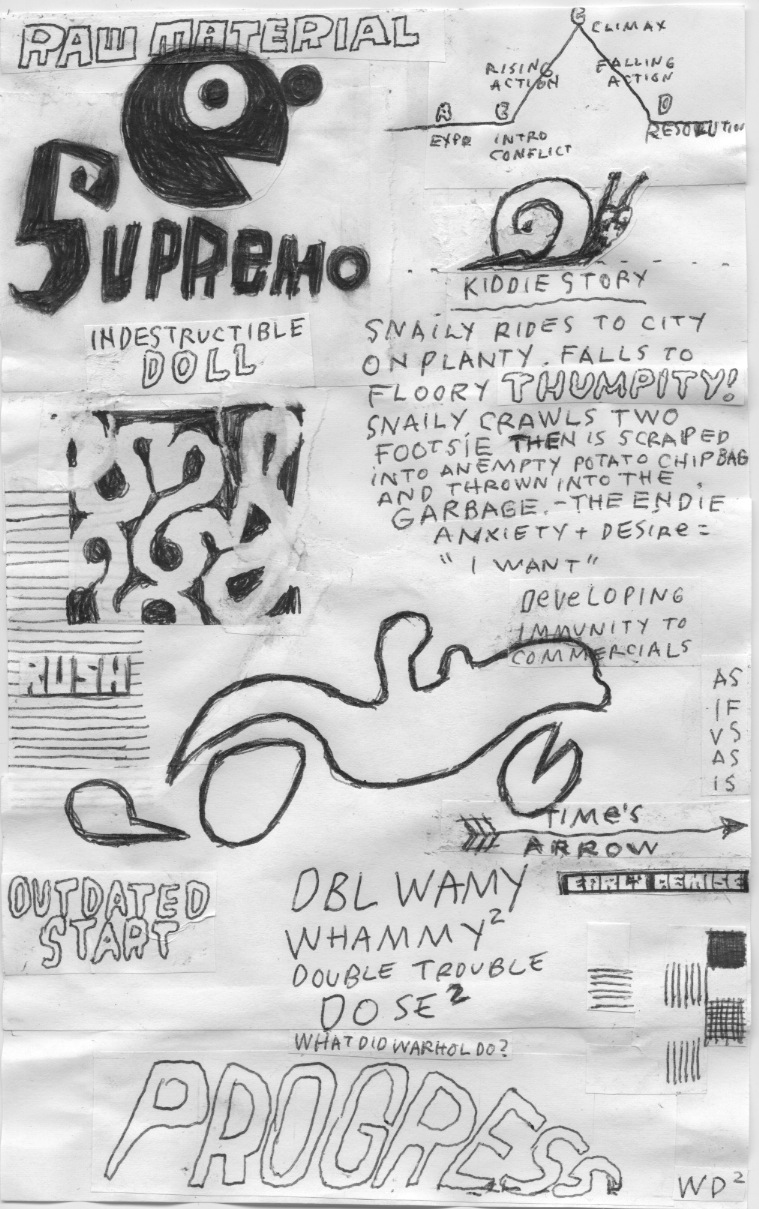 RAW MATERIAL
SUPREMO
INDESTRUCTIBLE
DOLL
C
CLIMAX
RISING
ACTION
FALLING
ACTION
A
D
EXPO
INTRO
CONFLICT
RESOLUTION
KIDDIE STORY
SNAILY RIDES TO CITY
ON PLANTY. FALLS TO
FLOORY THUMPITY!
SNAILY CRAWLS TWO
FOOTSIE THEN IS SCRAPED
INTO AN EMPTY POTATO CHIP BAG
AND THROWN INTO THE
GARBAGE. - THE ENDIE
ANXIETY + DESIRE =
"I WANT"
DEVELOPING
IMMUNITY TO
COMMERCIALS
RUSH
AS
IF
VS
AS
IS
TIME'S
ARROW
OUTDATED
START
DBL WAMY
WHAMMY²
DOUBLE TROUBLE
DOSE²
EARLY DEMISE
WHAT DID WARHOL DO?
PROGRESS
WD²